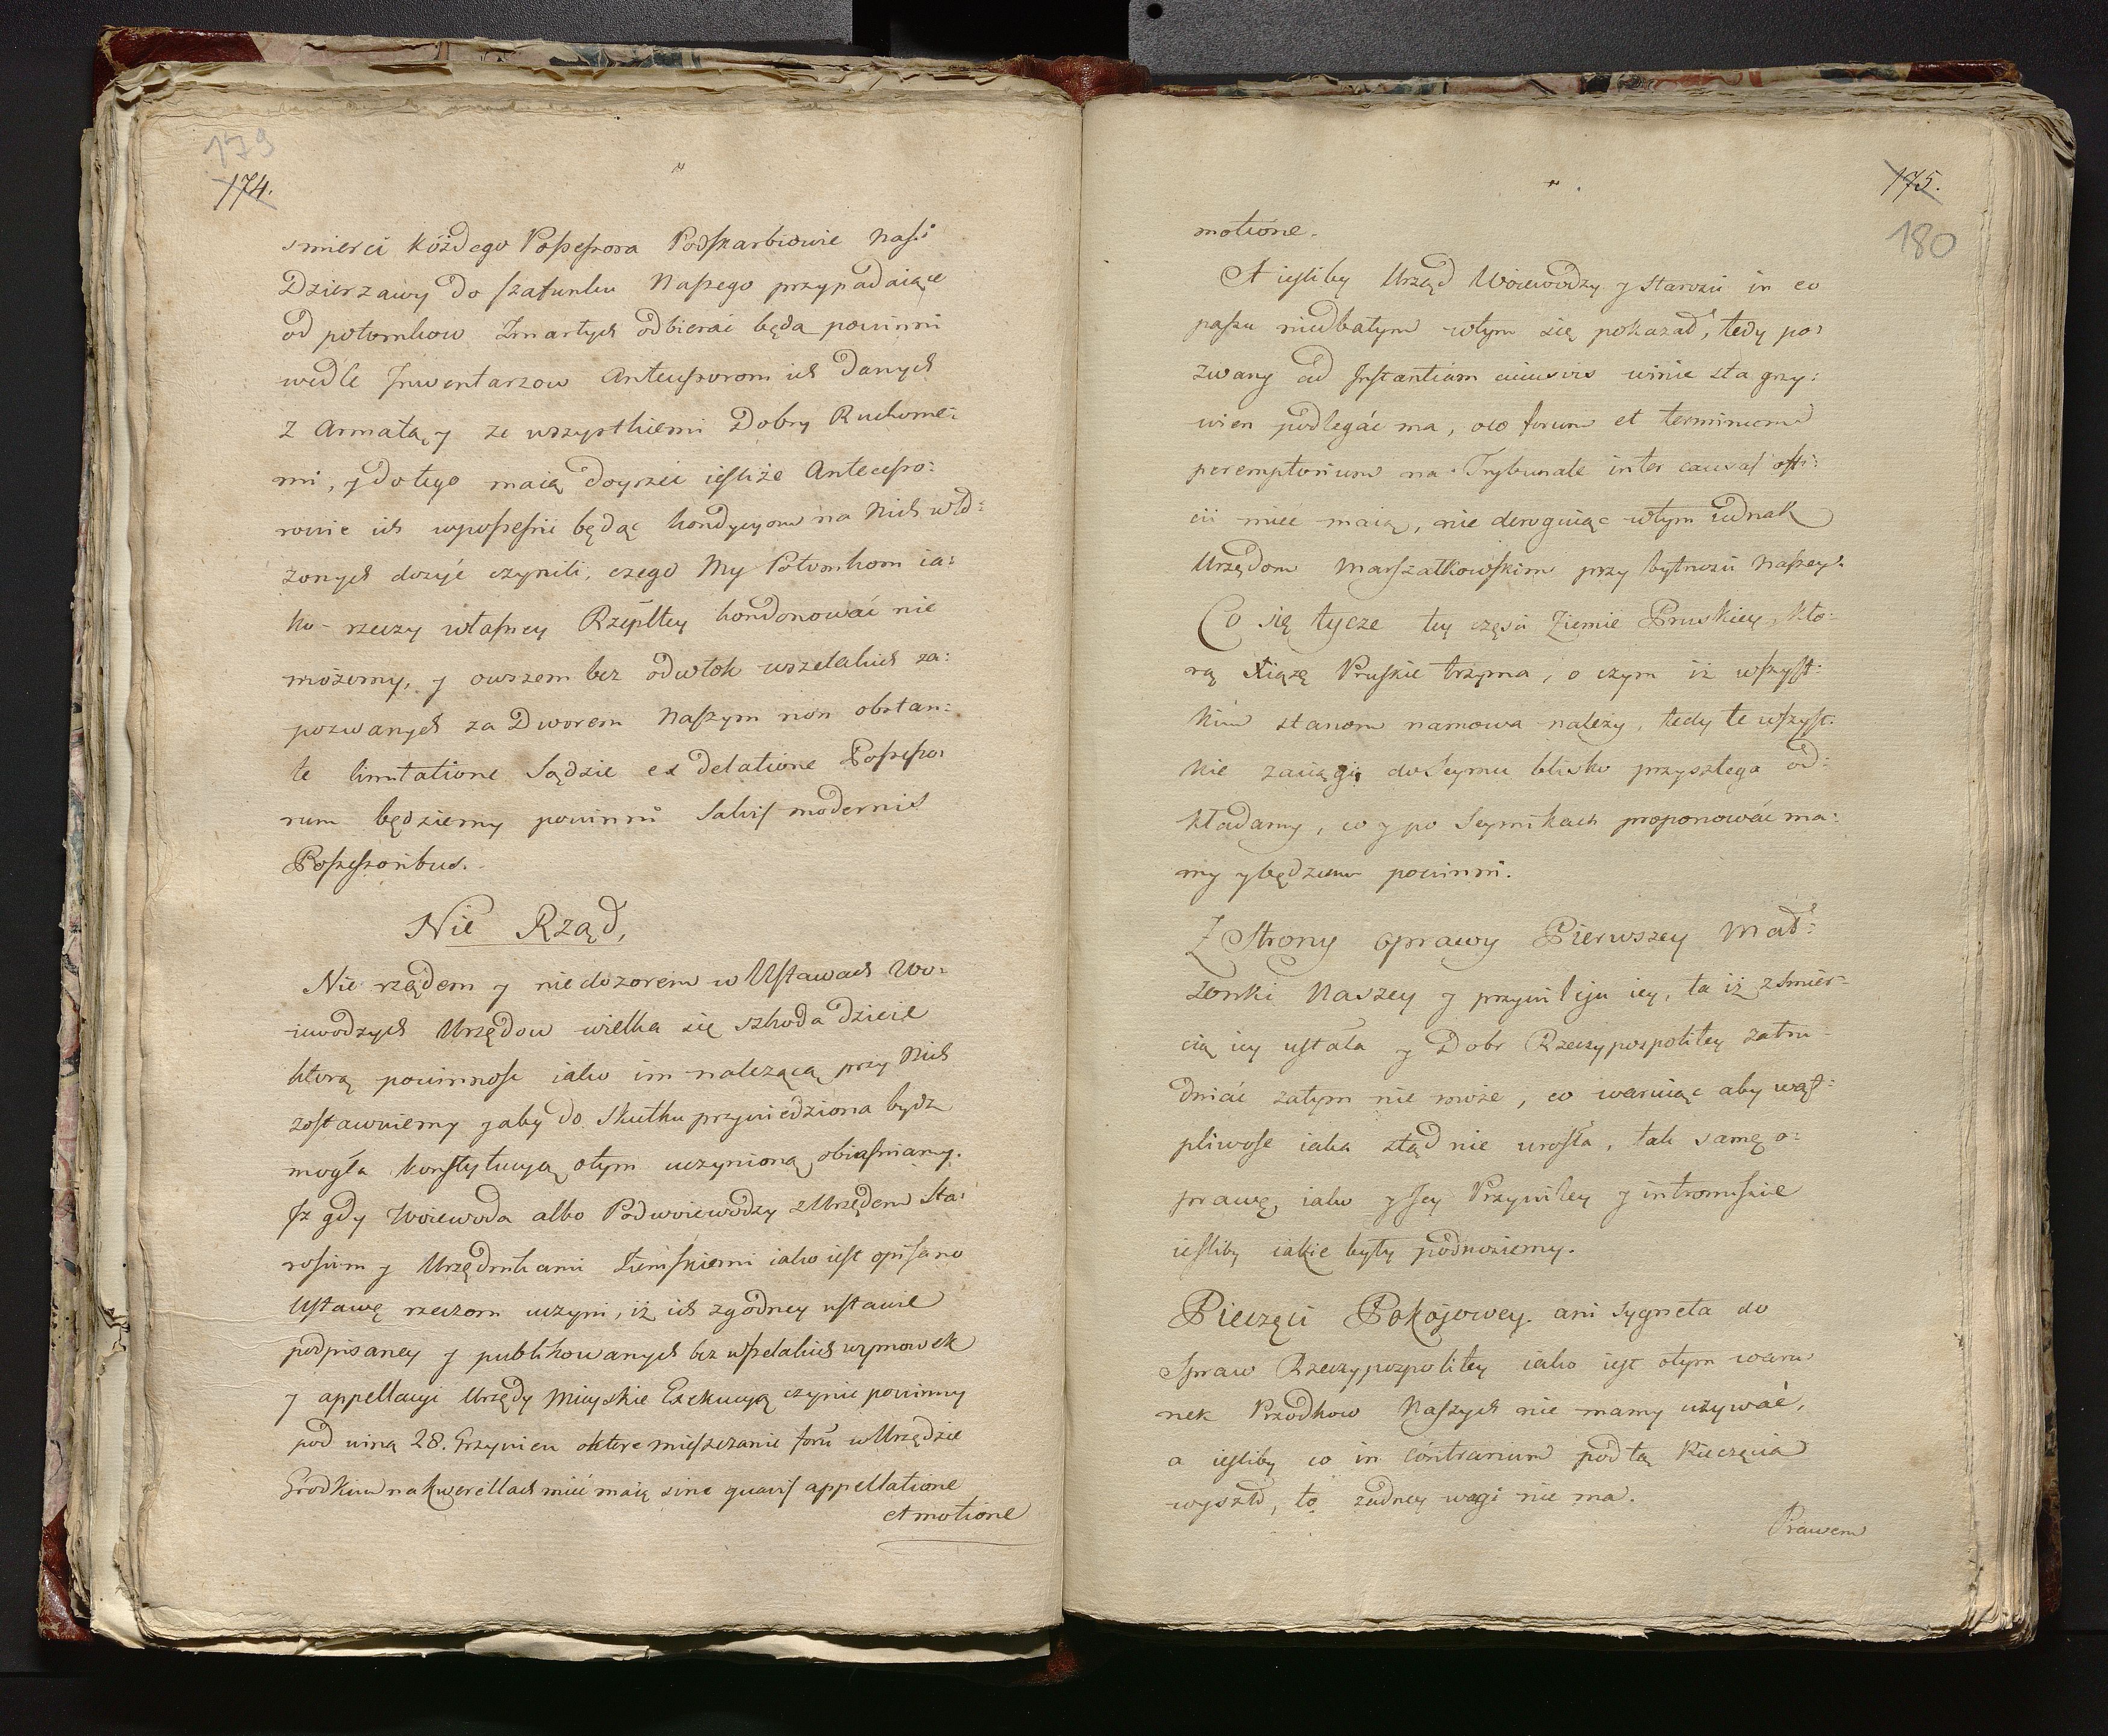 179
174.
smierci kożdego Possessora Podskarbiowie nasi
Dzierzawy do szafunku Naszego przypadaiące
od potomkow Zmartych odbierać będa powinni
wedle Jnwentarzow Antecessorom ich danych
z Armatą y ze wszystkiemi Dobry Ruchome:
mi, y do tego maią doyrzeć iesliże Antecesso:
rowie ich wposessii będąc kondycyom na Nich wło:
żonych dosyć czynili, czego My Potomkom ia:
ko rzeczy własney Rzeplltey kondonować nie
możemy, y owszem bez odwłok wszelakich za:
pozwanych za Dworem Naszym non obstan:
te limitatione Sądzie ex delatione Possesso:
rum będziemy powinni Salvis modernis
Possessoribus.
Nie Rząd,
Nie rządem y nie dozorem w Ustawach Wo:
iewodzych Urzędow wielka się szkoda dzieie
ktorą powinnosc iako im nalezącą przy Nich
zostawuiemy y aby do Skutku przywiedziona bydz
mogła konstytucyą otym uczynioną obiasniamy.
Jz gdy Woiewoda albo Podwoiewodzy z Urzędem Sta:
rosцim y Urzędnikami Ziemskiemi iako iest opisano
Ustawę rzeczom uczyni, iż ich zgodney ustawie
podpisaney y publikowanych bez wszelakich wymowek
y appellacyi Urzędy Mieyskie Exekucyą czynic powinny
pod winą 28. Grzywien oktore mieszczanie forū w Urzędzie
Grodzkim na kwerellach mieć maią sine quavis appellatione
et motione
175.
180
motione.
A iesliby Urząd Woiewodzy y Starosci in eo
passu niedbałym wtym się pokazał, tedy po:
zwany ad Jnstantiam cuiusvis winie sta grzy:
wien podlegać ma, oco forum et terminum
peremptorium na Trybunale inter causas offi:
cii miec maią, nie deroguiąc wtym iednak
Urzędom Marszałkowskim przy bytnosci Naszey.
Co się tycze tey częsci Ziemie Pruskiey, kto:
rą Xiąże Pruskie trzyma, o czym iż wszyst:
kim stanom namowa należy, tedy te wszyst:
kie zaciągi do Seymu blisko przyszłego od:
kładamy, co y po Seymikach proponować ma:
my y będziem powinni.
Z Strony oprawy Pierwszey Mał:
żonki Naszey y przywileju iey, ta iż z smier:
cią iey ustała y Dobr Rzeczypospolitey zatru:
dniać zatym nie może, co waruiąc aby wąt:
pliwosc iaka ztąd nie urosła, tak samę o:
prawę, iako y Jey Przywiley y intromissie
iesliby iakie były podnosiemy.
Pieczęci Pokojowey ani sygneta do
Spraw Rzeczypospolitey iako iest otym waru
nek Przodkow Naszych nie mamy używać,
a iesliby co in contrarium pod tą Pieczęcia
wyszło, to żadney wagi nie ma.
Prawem